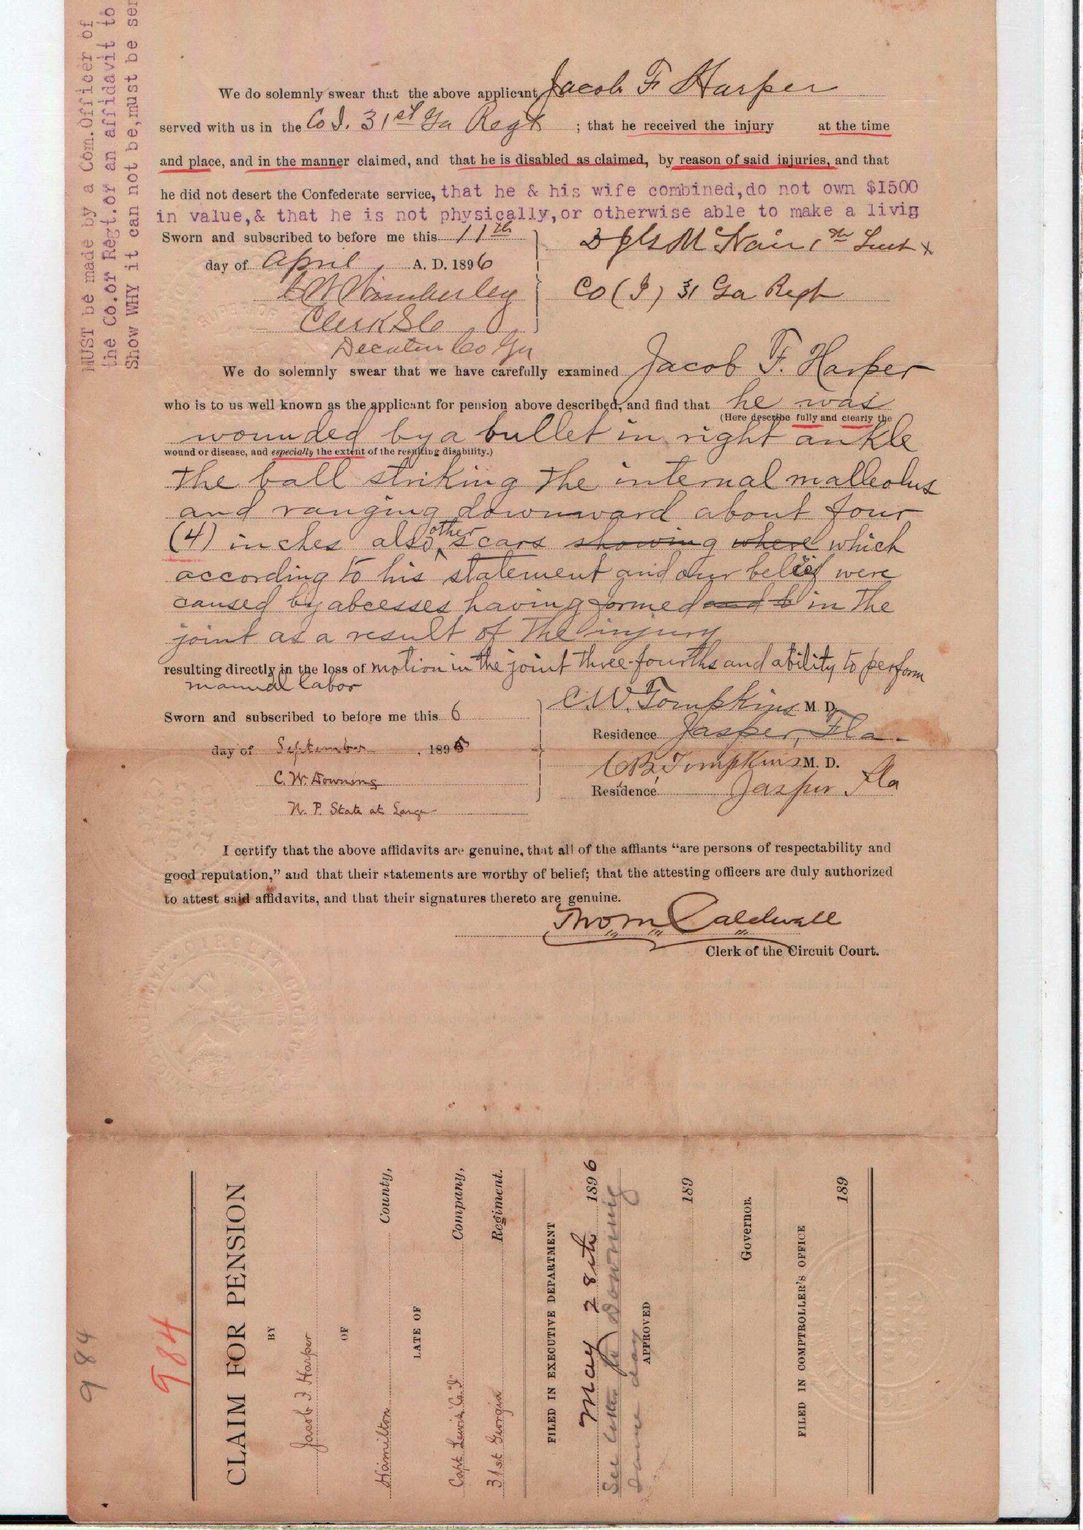 MUST be made by a Com.Officer of
the Co.or Regt.or an affidavit to
Show WHY it can not be,must be ser
We do solemnly swear that the above applicant Jacob F Harper
served with us in the Co I. 31st Ga Regt ; that he received the injury at the time
and place, and in the manner claimed, and that he is disabled as claimed, by reason of said injuries, and that
he did not desert the Confederate service, that he & his wife combined,do not own $1500
in value,& that he is not physically,or otherwise able to make a livig
Sworn and subscribed to before me this 11th
day of April, A. D. 1896
Wimberley
Clerk S C
Decatur Co Ga
McNair 1st Lieut x
Co (I) 31 Ga Regt
We do solemnly swear that we have carefully examined Jacob F. Harper
who is to us well known as the applicant for pension above described, and find that he was
(Here describe fully and clearly the
wounded by a bullet in right ankle
wound or disease, and especially the extent of the resulting disability.)
the ball striking the internal malleolus
and ranging downward about four
(4) inches also other scars showing where which
according to his statement and our belief were
caused by abcesses having formed and b in the
joint as a result of the injury
resulting directly in the loss of motion in the joint three-fourths and ability to perform
manual labor
Sworn and subscribed to before me this 6
day of September, 1895
C. W. Downing
N. P. State at Large
C. W. Tompkins M. D.
Residence Jasper, Fla.
C B Tompkins M. D.
Residence Jasper Fla
I certify that the above affidavits are genuine, that all of the affiants "are persons of respectability and
good reputation," and that their statements are worthy of belief; that the attesting officers are duly authorized
to attest said affidavits, and that their signatures thereto are genuine.
Thom Caldwell
Clerk of the Circuit Court.
984
984
CLAIM FOR PENSION
BY
Jacob F Harper
OF
Hamilton County,
LATE OF
Capt Lewis Co. I Company,
31st Georgia Regiment.
FILED IN EXECUTIVE DEPARTMENT
May 28th 1896
See letter to Downing
same day
APPROVED
189
Governor.
FILED IN COMPTROLLER'S OFFICE
189